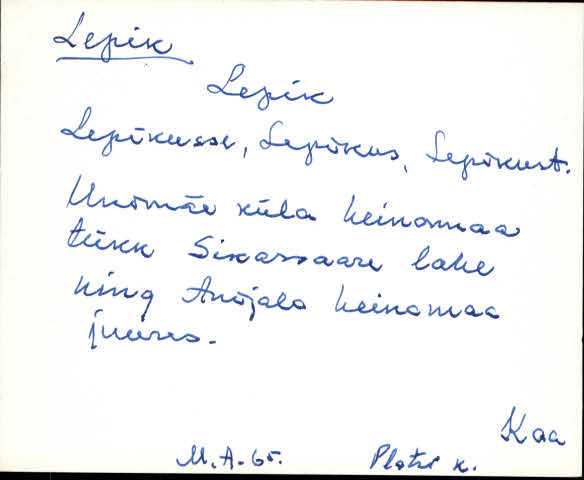 Lepik
Lepik
Lepikusse, Lepikus, Lepikust.
küla heinamaa
tükk Sikassaare lahe
ning heinamaa
juures.
Kaa
M.A.-65. Platsi k.